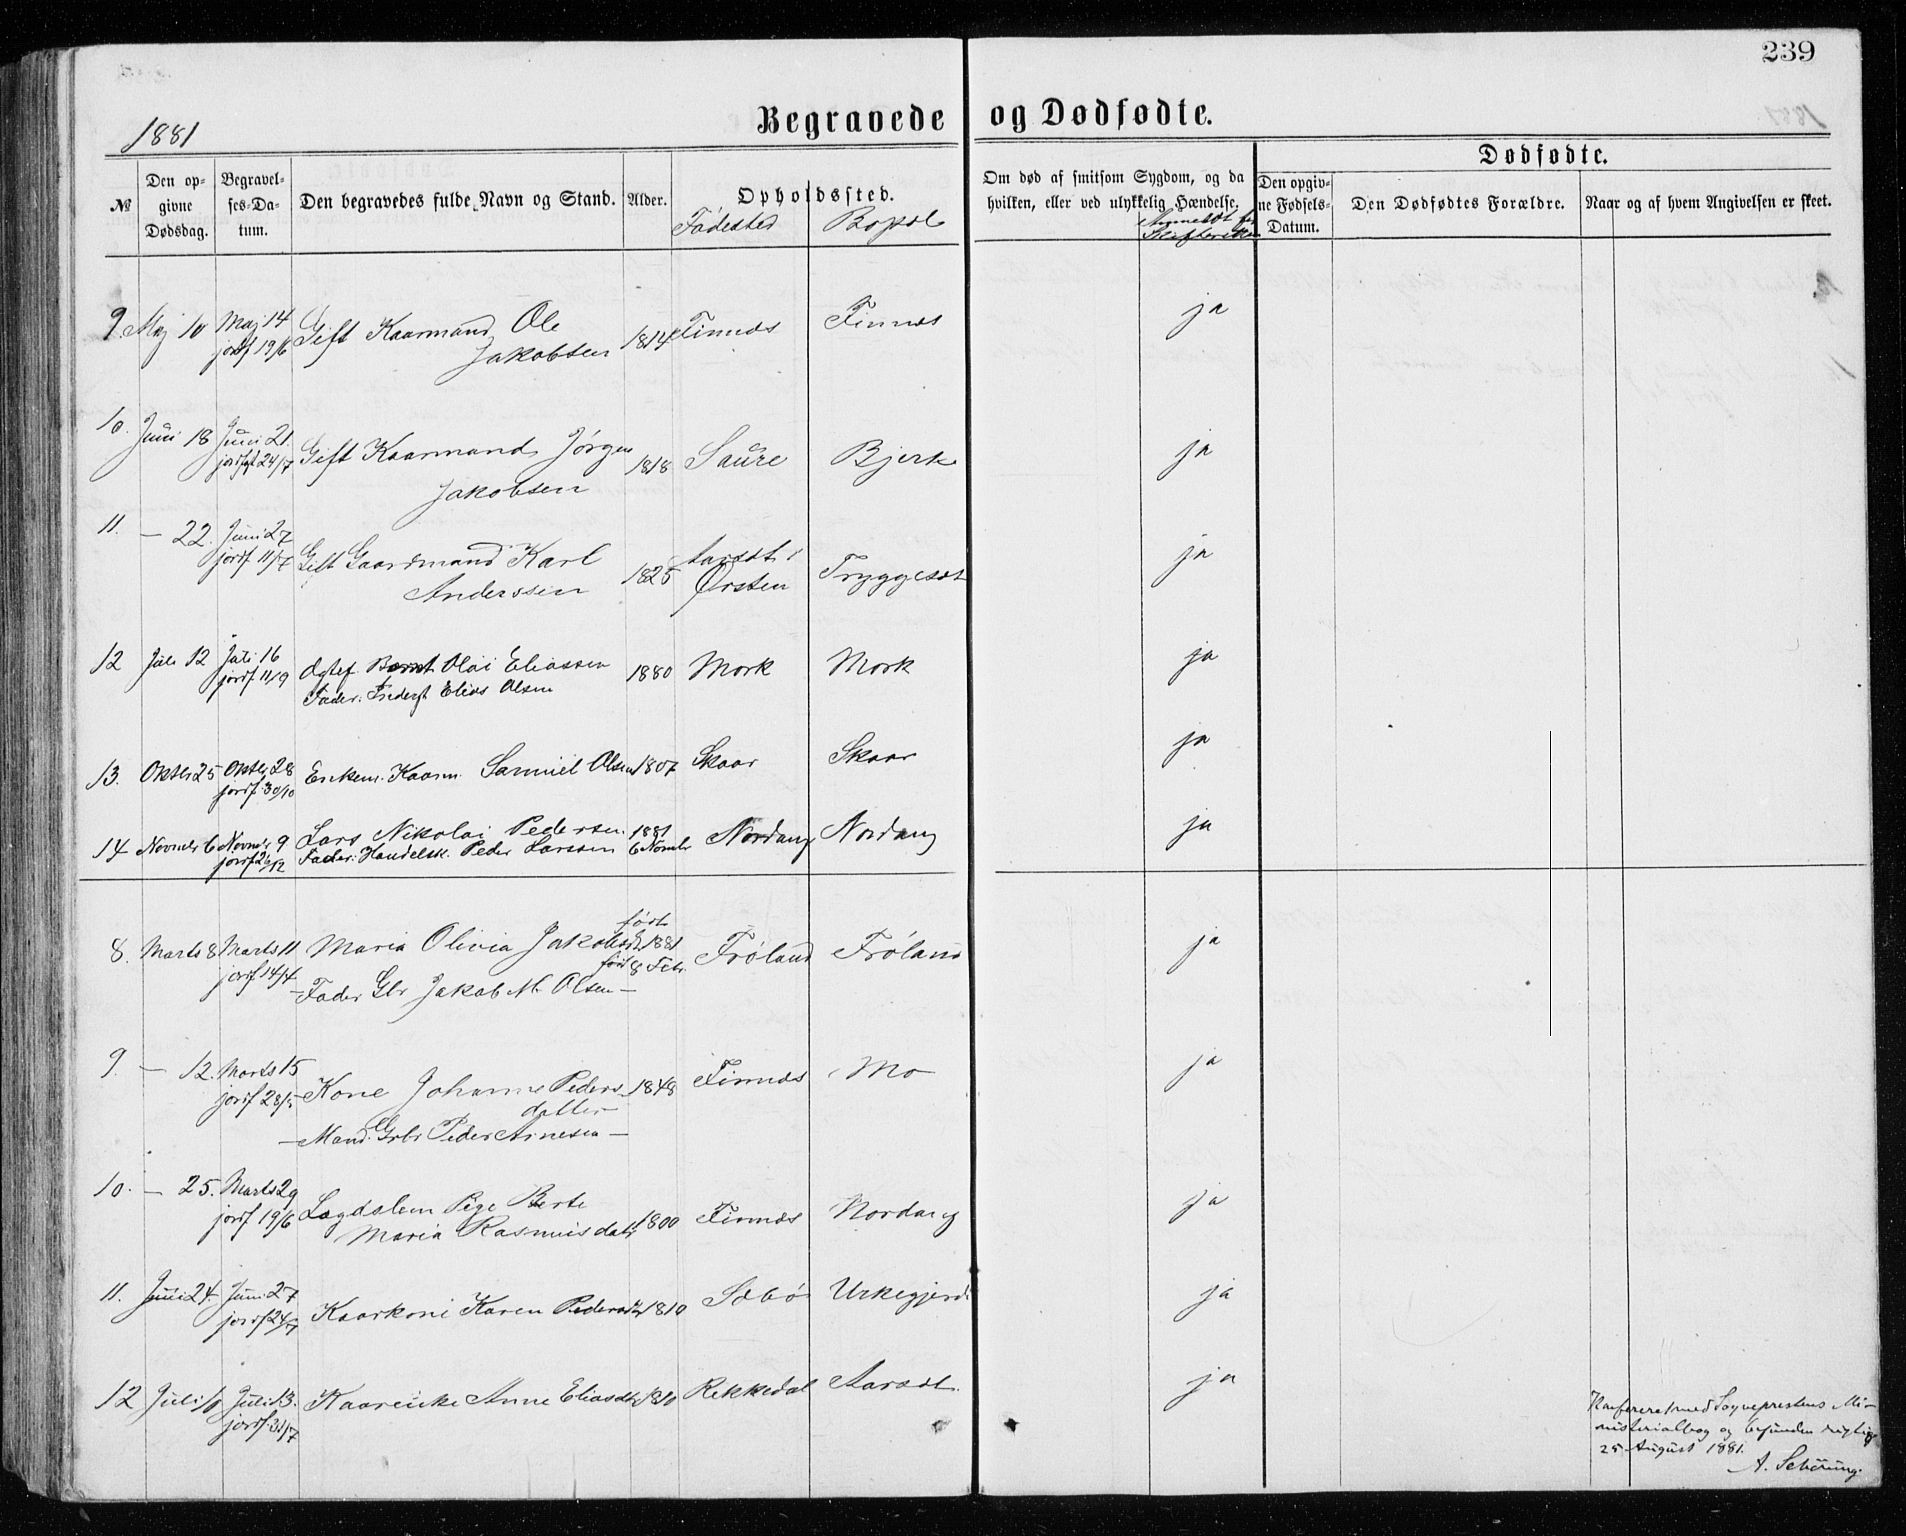 239
1881
Begravede og Dødfødte.
№
Den opgivne Dødsdag.
Begravelses-Datum.
Den begravedes fulde Navn og Stand.
Alder.
Opholdssted.
Fødested Bopæl
Om død af smitsom Sygdom, og da hvilken, eller ved ulykkelig Hændelse.
Anmeldt for Skifteretten
Dødfødte.
Den opgivne Fødsels-Datum.
Den Dødfødtes Forældre.
Naar og af hvem Angivelsen er skeet.
9. Maj 10 Maj 14 Gift Kaarmand Ole 1814 Finnæs Finnæs ja
jordf 19/6 Jakobsen
10. Juni 18 Juni 21. Gift Kaarmand Jørgen 1818 Saure Bjerke ja
jordfst 24/7 Jakobsen
11. — 22. Juni 27 Gift Gaardmand Karl 1825 Aarsæt i Tryggesæt ja
jordf 11/7 Anderssen Ørsten
12 Juli 12 Juli 16 Ægtef. Bernt Olai Eliassen 1880 Mork Mork ja
jordf 11/9 Fader: Elias Olsen
13. Oktbr 25 Oktbr 28 Enkem. Kaarm. Samuel Olsen 1807 Skaar Skaar ja
jordf. 30/10
14 Novmbr 6 Novmbr 9 Lars Nikolai Pedersen. 1881 Nordang Nordang ja
jordf Fader: Handelsk. Peder Larssen 6 Novmbr
født
8. Marts 8 Marts 11 Maria Olivia Jakobsdtr 1881 Frøland Frøland ja
jordf 14/4 født 8 Febr.
— Fader Gbr Jakob M. Olsen —
9. — 12. Marts 15 Kone Johanne Peders- 1848 Finnæs Mo ja
jordf 28/5 datter
— Mand: Grbr Peder Arnesen —
10. — 25. Marts 29 Lægdslem Pige Berte 1800 Finnæs Nordang ja
jordf 19/6 Maria Rasmusdatr
11. Juni 24. Juni 27 Kaarkone Karen Pedersdtr 1810 Sæbø Urkegjerde ja
jordf 24/7
12 Juli 10 Juli 13. Kaarenke Anne Eliasdtr 1810 Rekkedal Aarsæt. ja
jordf. 31/7
Konfereret med Sognepræstens Mi-
nisterialbog og befunden rigtig
25 August 1881.
A. Schöning.